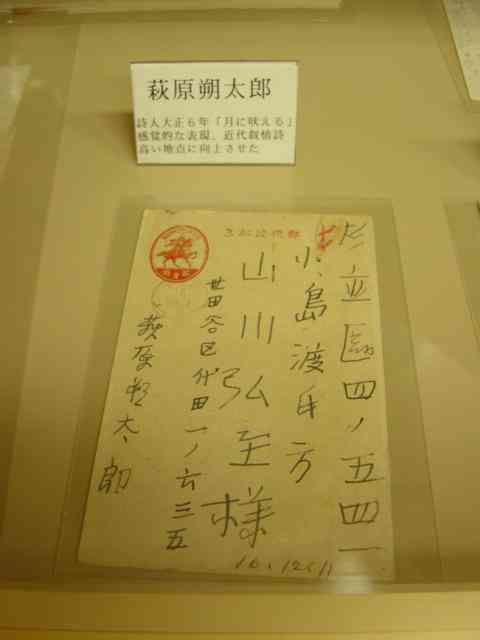 萩原朔太郎
詩人大正6年「月に吠える」
感覚的な表現、近代叙情詩
高い地点に向上させた
郵便はかき
立區四ノ五四一
小島渡氏方
山川弘至様
世田谷区代田一ノ六三五
萩原朔太郎
16.12.11